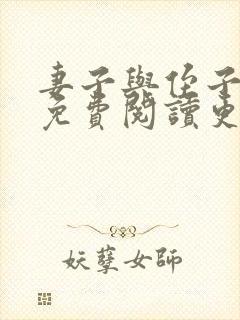 妻子與侄子
免費閱讀更
妖孽女師